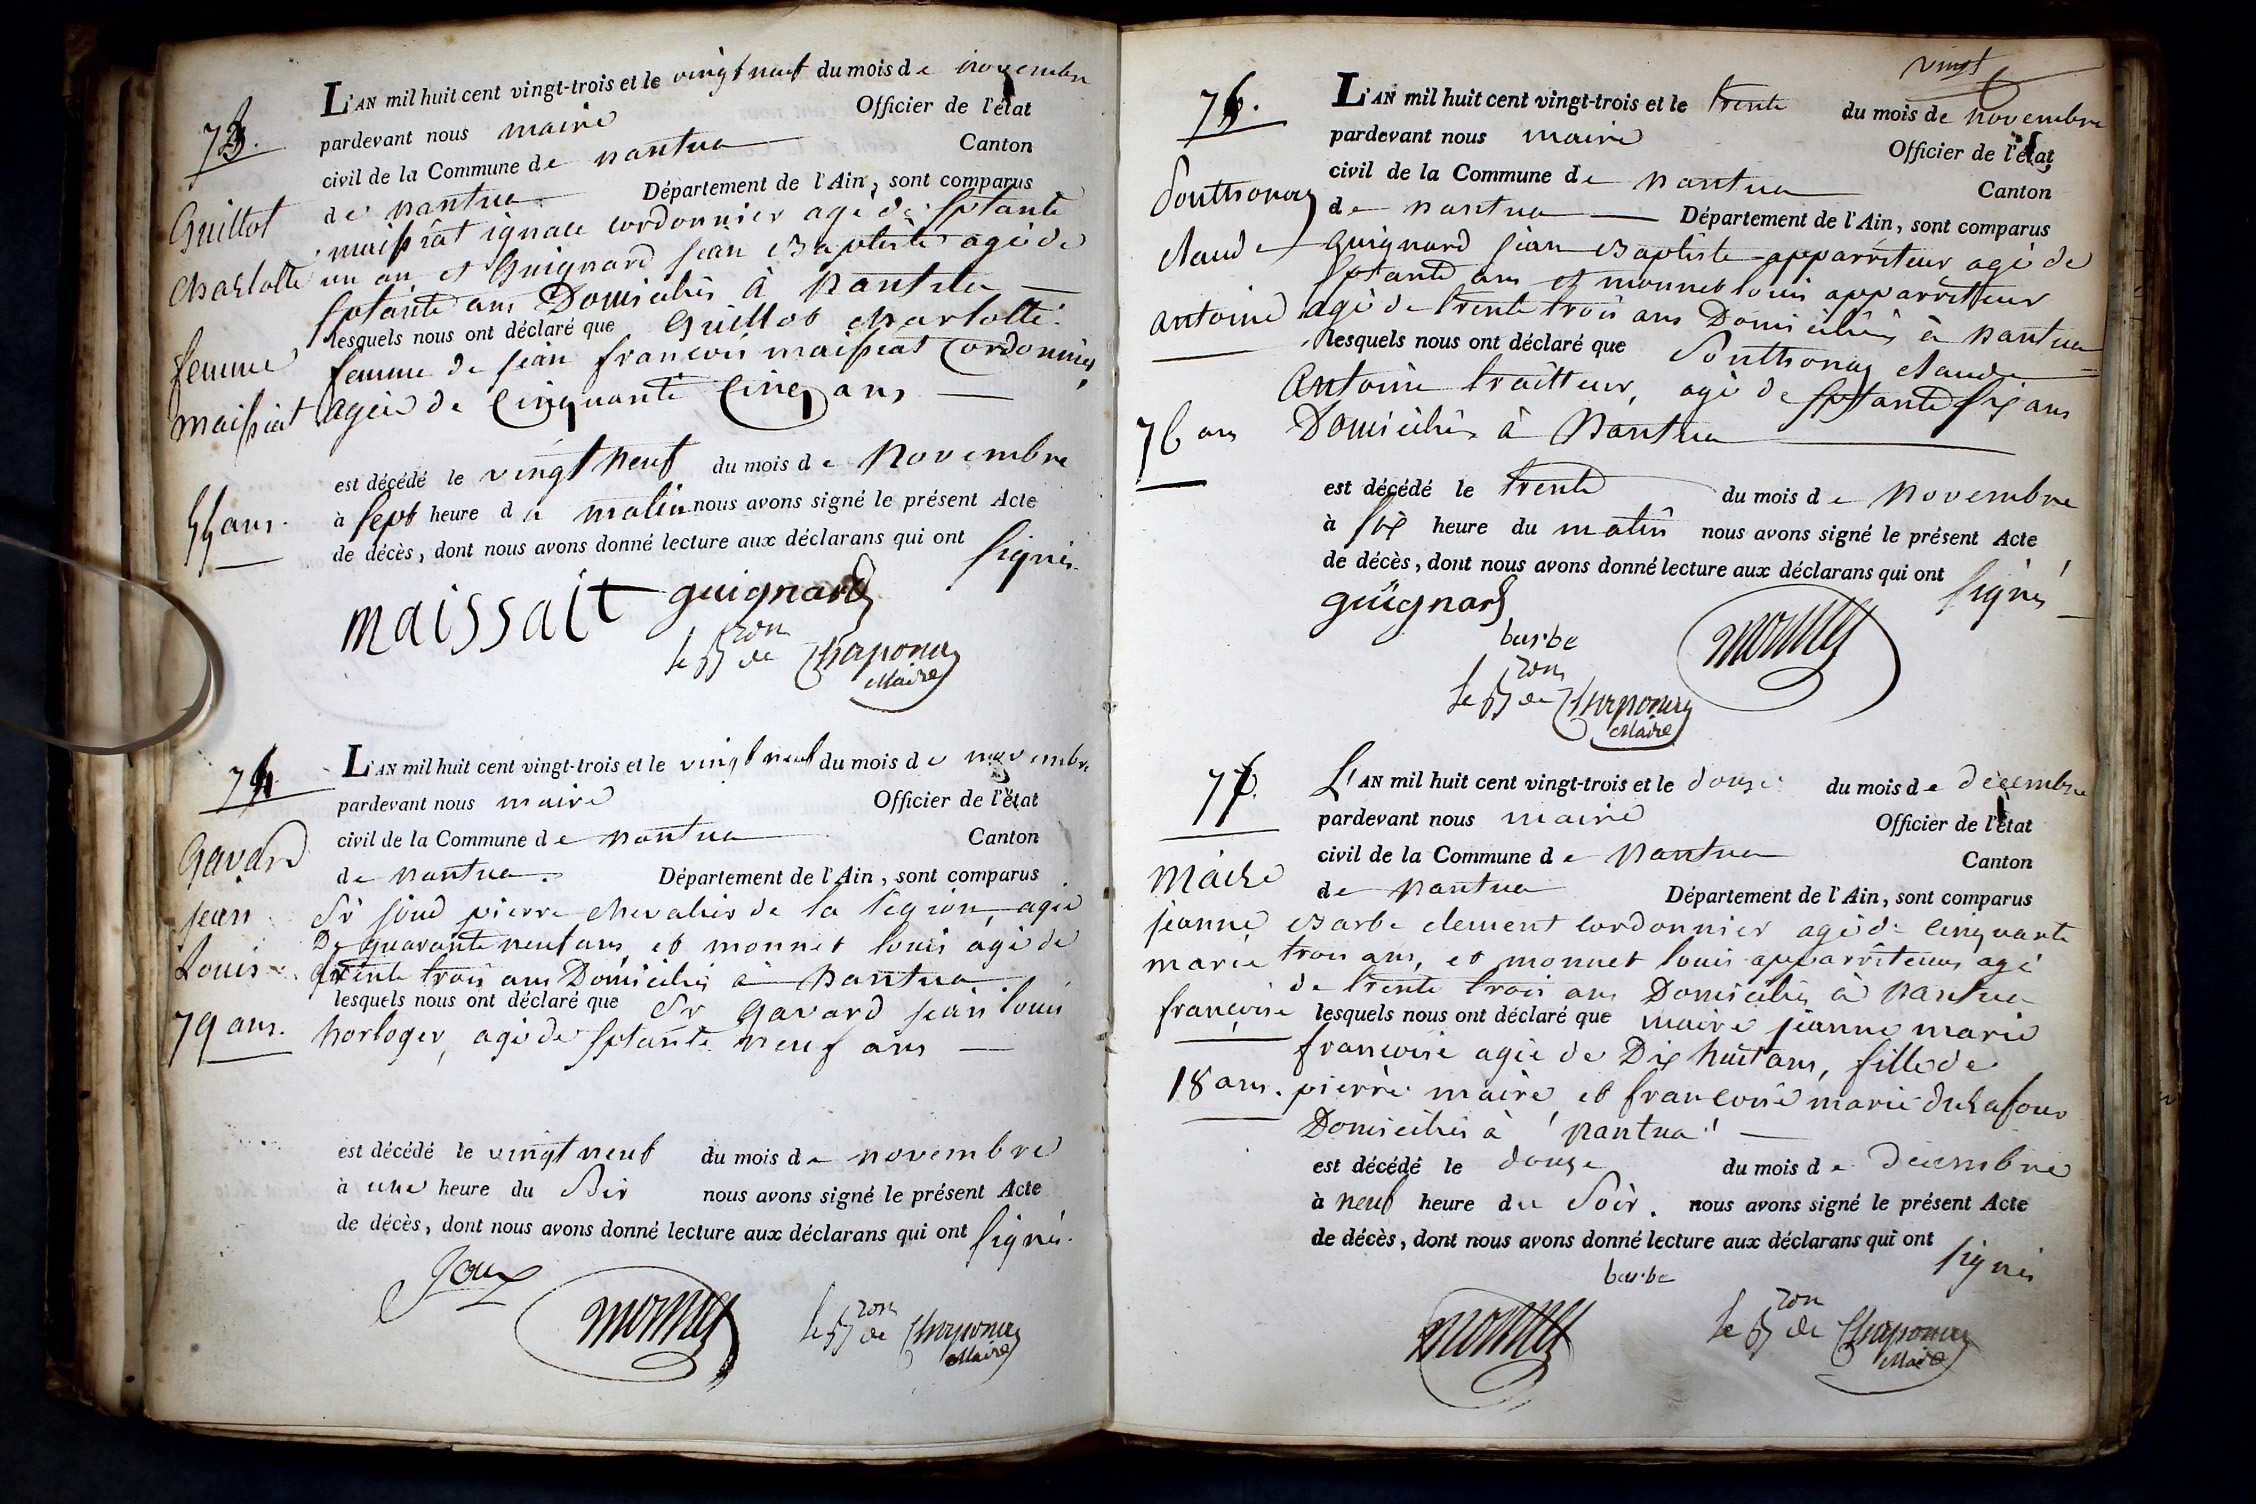 L'AN mil huit cent vingt-trois et le vingt neuf du mois de novembre
pardevant nous maire Officier de l'état
civil de la Commune de nantua Canton
de nantua Département de l'Ain, sont comparus
maissiat ignace cordonnier agé de septante
un an et Guignard jean Baptiste agé de
septante ans Domiciliés à Nantua
lesquels nous ont déclaré que Guillot charlotte
femme de jean francois maissiat Cordonnier,
agée de Cinquante Cinq ans
est décédé le vingt neuf du mois de Novembre
à sept heure du matin nous avons signé le présent Acte
de décès, dont nous avons donné lecture aux déclarans qui ont signés.
73.
Guillot
charlotte
femme
maissiat
55 ans.
maissait guignard
le Bon de Chaponay
Maire
74.
Gavard
jean
Louis
79 ans.
L'AN mil huit cent vingt-trois et le vingt neuf du mois de novembre
pardevant nous maire Officier de l'état
civil de la Commune de nantua Canton
de nantua. Département de l'Ain, sont comparus
Sr joud pierre chevalier de la légion, agé
De quarante neuf ans et monnet louis agé de
trente trois ans Domiciliés à Nantua
lesquels nous ont déclaré que Sr Gavard jean louis
horloger, agé de septante neuf ans
est décédé le vingt neuf du mois de novembre
à une heure du soir nous avons signé le présent Acte
de décès, dont nous avons donné lecture aux déclarans qui ont signés.
monnet le Bon de Chaponay
Maire
vingt
75.
Southonay
claude
antoine
76 ans
L'AN mil huit cent vingt-trois et le trente du mois de novembre
pardevant nous maire Officier de l'état
civil de la Commune de Nantua Canton
de nantua Département de l'Ain, sont comparus
Guignard jean Baptiste apparriteur agé de
septante ans et monnet louis apparritteur
agé de trente trois ans Domiciliés à nantua
lesquels nous ont déclaré que Southonay claude
Antoine traitteur, agé de septante six ans
Domiciliés à Nantua
est décédé le trente du mois de Novembre
à six heure du matin nous avons signé le présent Acte
de décès, dont nous avons donné lecture aux déclarans qui ont signés
guignard
barbe monnet
le Bon de Chaponay
Maire
Maire
jeanne
marie
françoise
18 ans.
L'AN mil huit cent vingt-trois et le douze du mois de décembre
pardevant nous maire Officier de l'état
civil de la Commune de Nantua Canton
de Nantua Département de l'Ain, sont comparus
Barbe clement cordonnier agé de cinquante
trois ans, et monnet louis apparriteur agé
de trente trois ans Domiciliés à nantua
lesquels nous ont déclaré que maire jeanne marie
francoise agée de Dix huit ans, fille de
pierre maire et francoise marie dulafour
Domiciliés à nantua
est décédé le douze du mois de Decembre
à neuf heure du Soir. nous avons signé le présent Acte
de décès, dont nous avons donné lecture aux déclarans qui ont signés
barbe
monnet le Bon de Chaponay
Maire